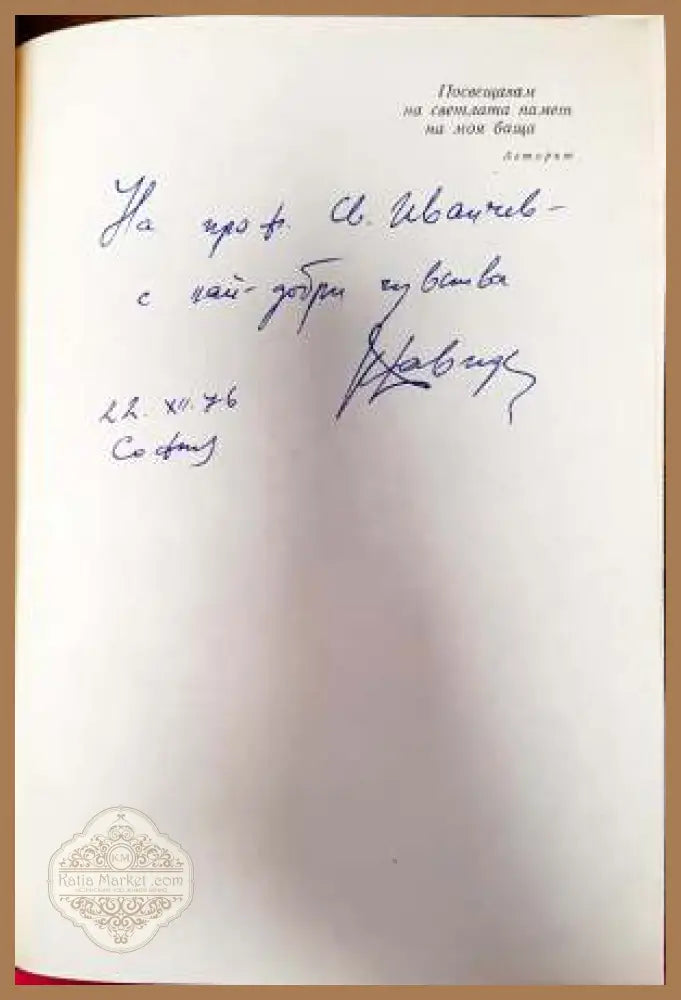 Посвещавам
на светлата памет
на моя баща
Авторът
На проф. Св. Иванчев –
с най-добри чувства
22. XII. 76
София
KM
Katia Market .com